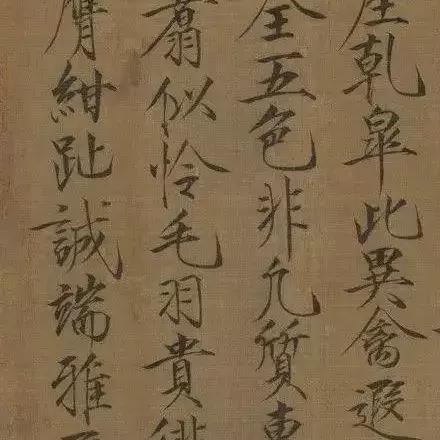 乾皋此異禽遐
全五色非凡質
翥似怜毛羽貴
膺紺趾誠端雅